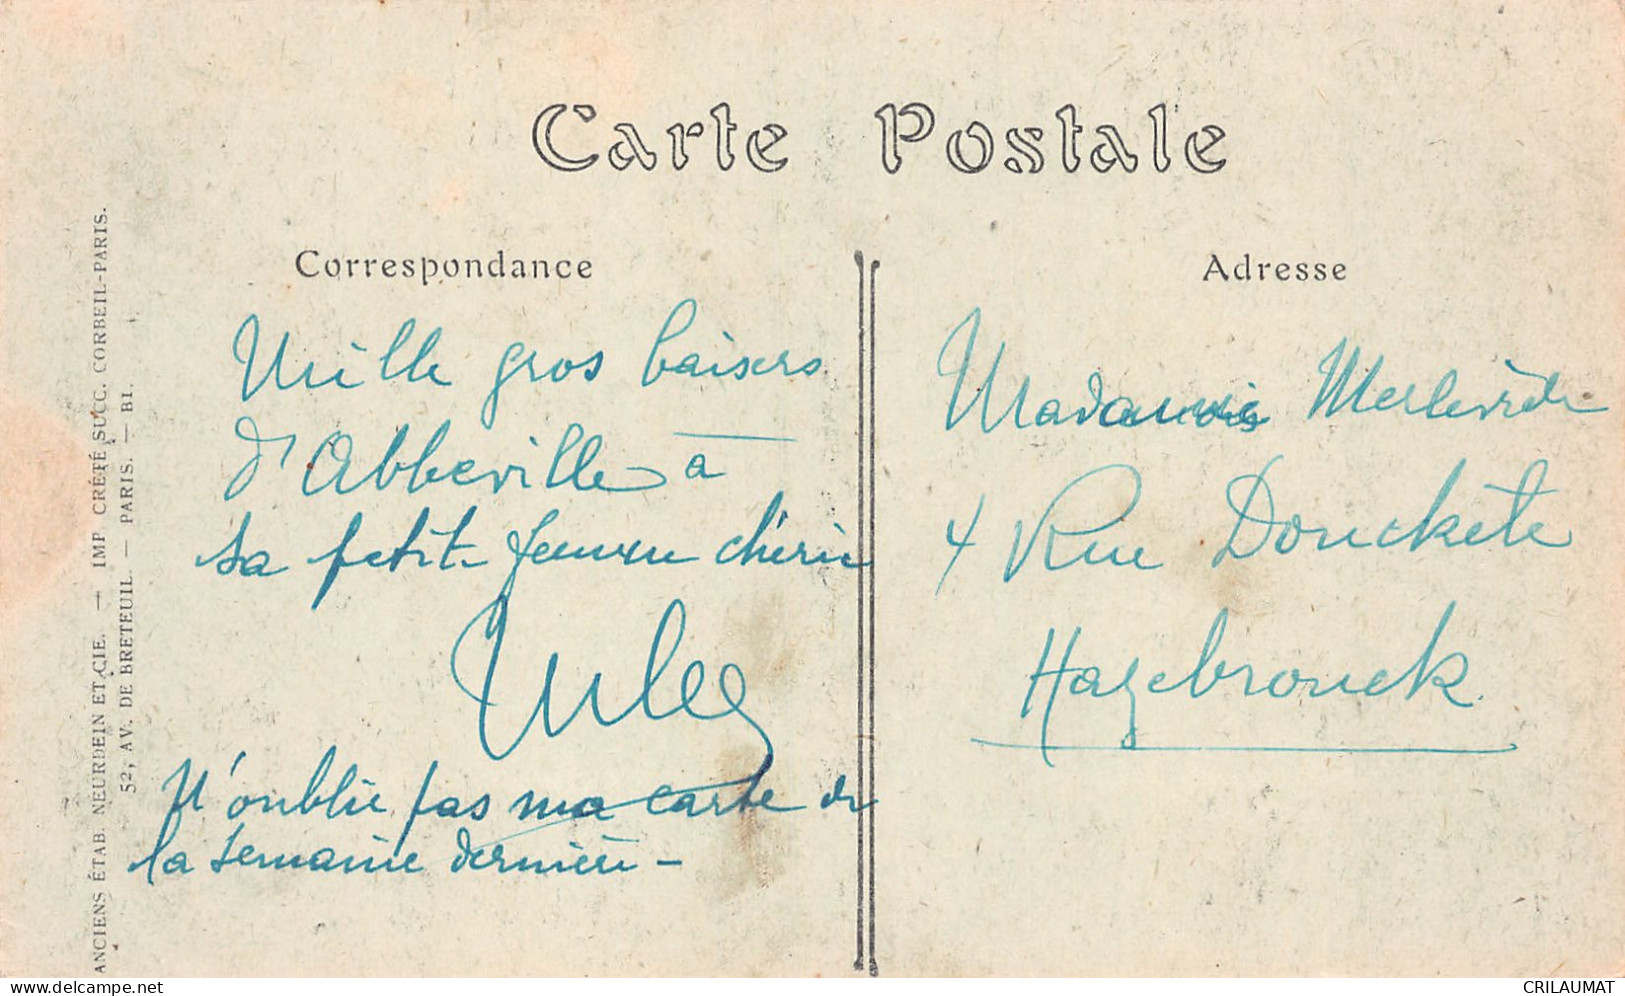 Carte Postale
Correspondance
Mille gros baisers
d'Abbeville à
sa petite femme chérie
Jules
N'oublie pas ma carte de
la semaine dernière -
Adresse
Madame
4 Rue Donckèle
Hazebrouck.
ANCIENS ÉTAB. NEURDEIN ET CIE. — IMP CRÉTÉ SUCC. CORBEIL-PARIS.
52, AV. DE BRETEUIL. — PARIS. — BI.
www.delcampe.net
CRILAUMAT